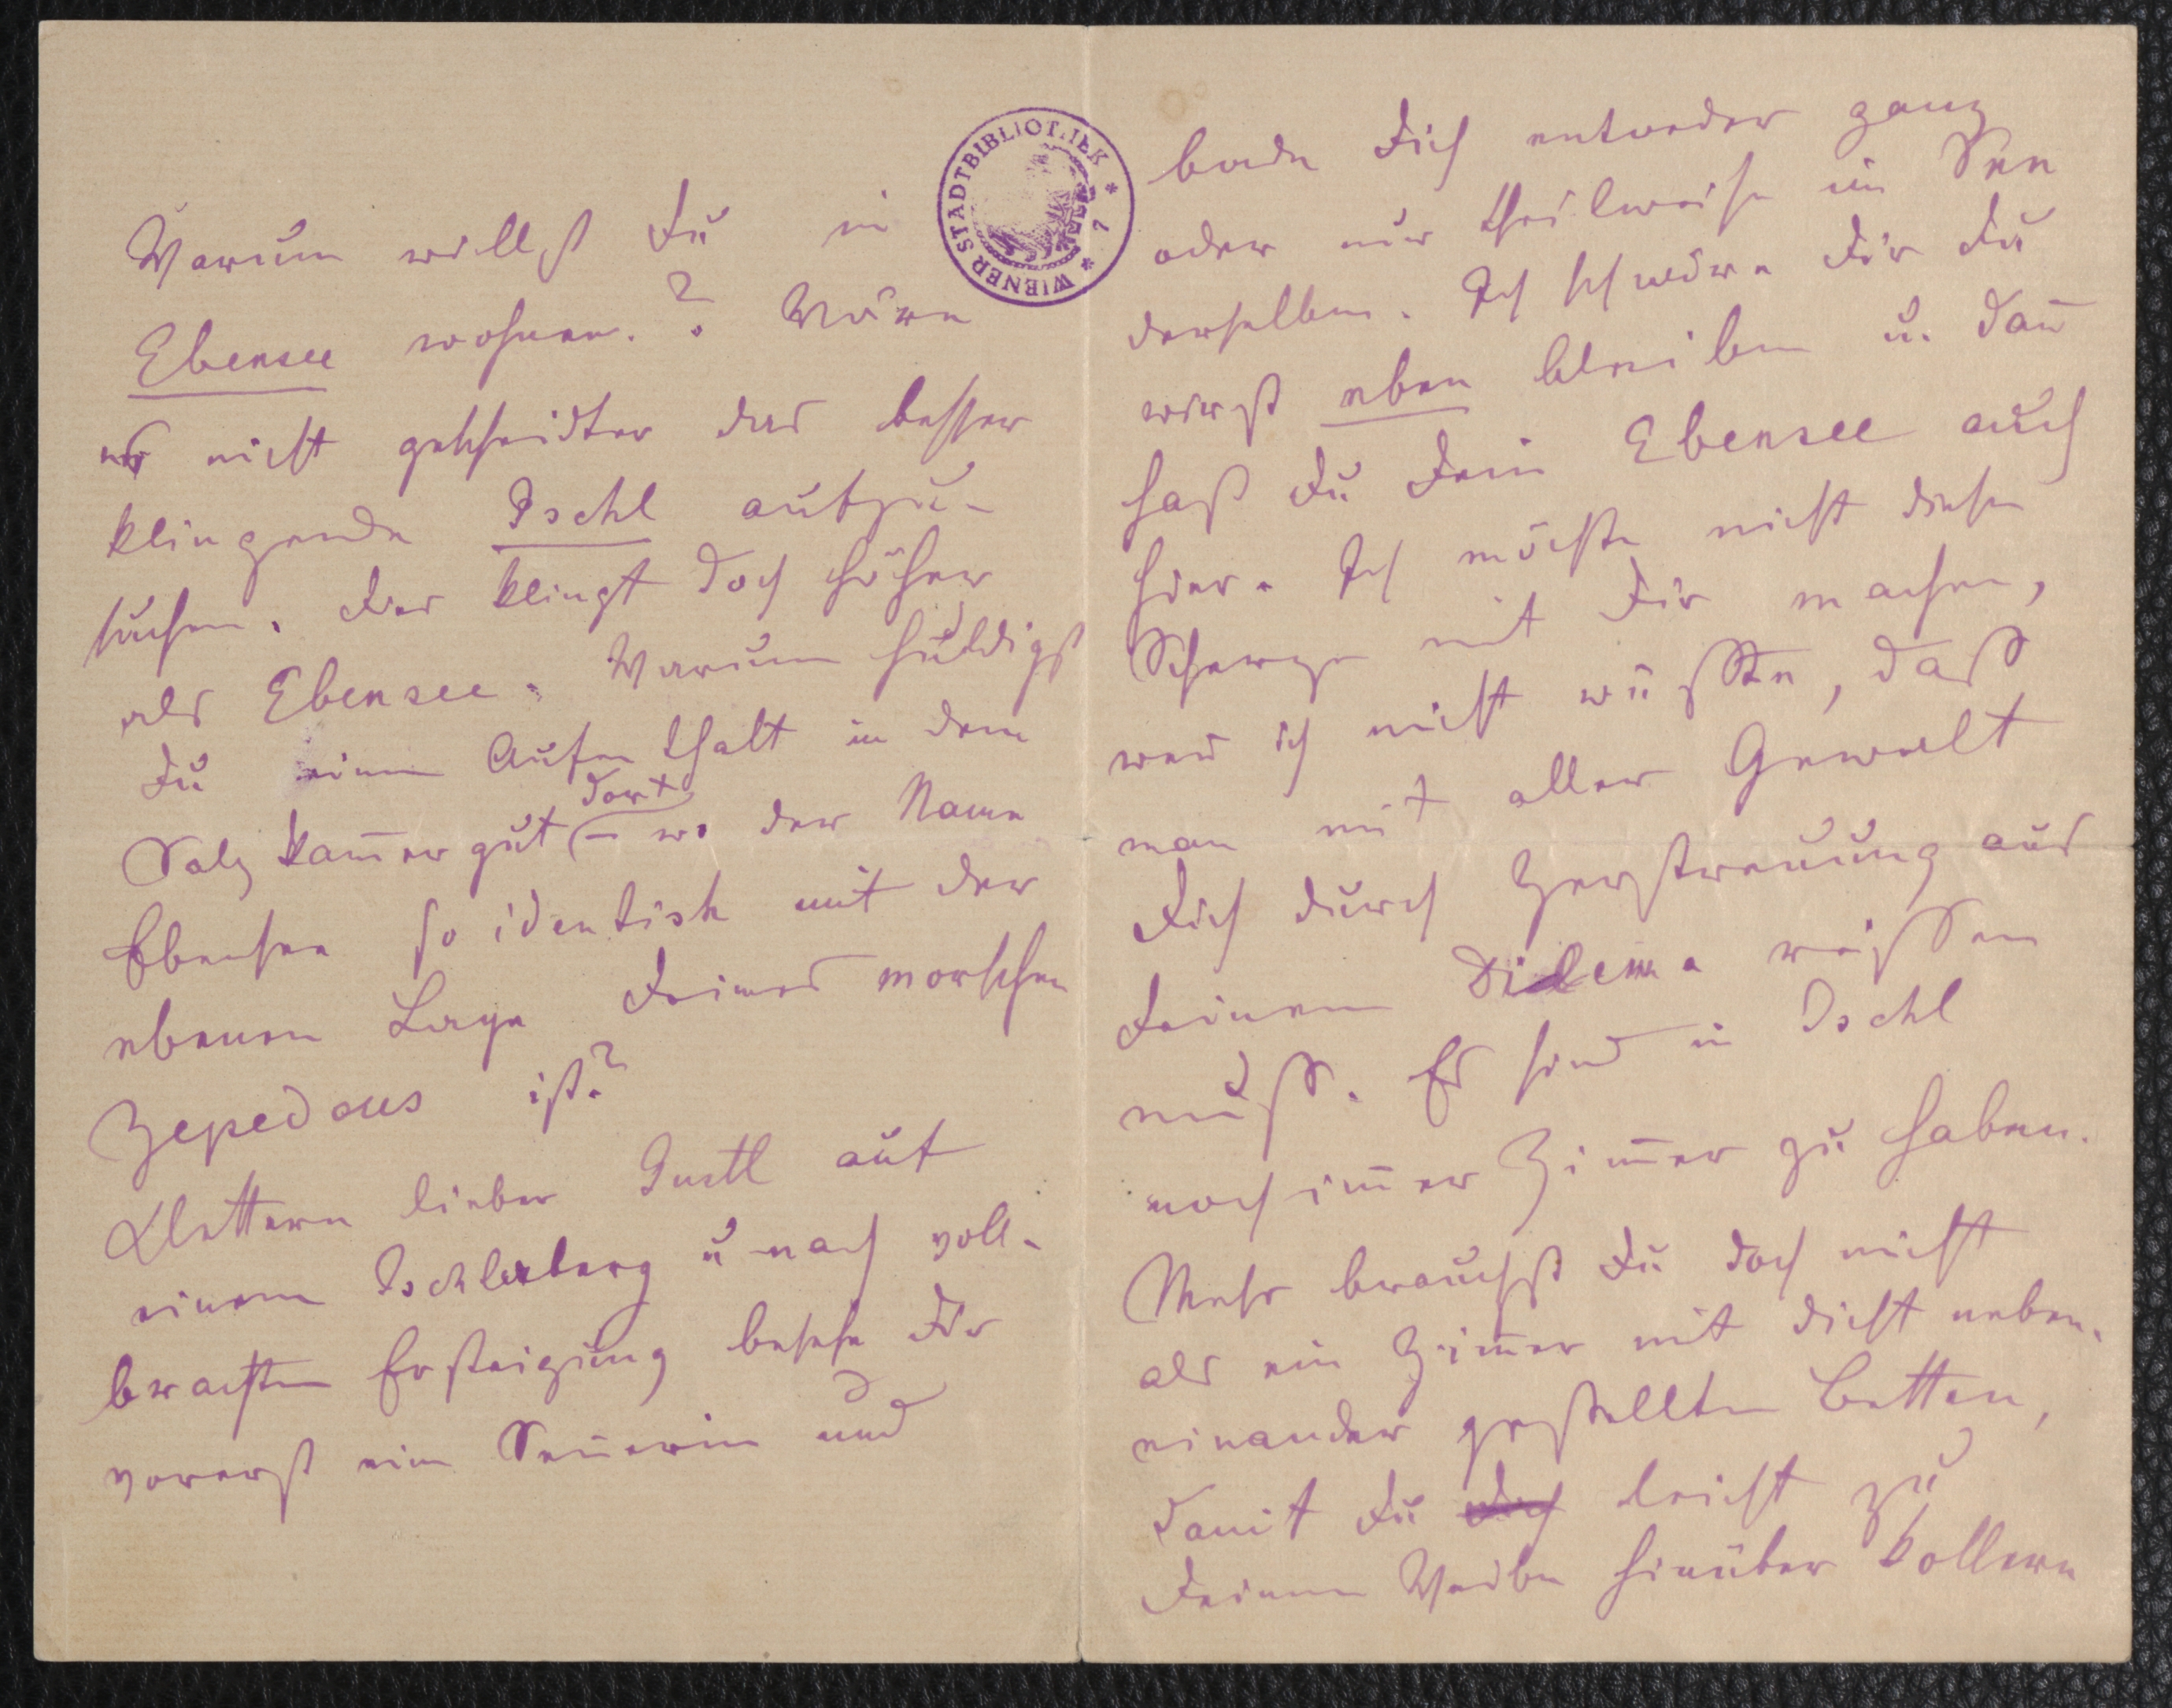 Warum willst Du in
Ebensee wohnen.? Wäre
es nicht gescheidter das besser
klingende Ischl aufzu-
suchen. Das klingt doch höher
als Ebensee. Warum huldigst
Du einem Aufenthalt in dem
dort
Salzkam̅ergut – wo der Name
Ebensee so identisch mit der
ebenen Lage Deines morschen
Zepedaus ist?
Klettern lieber Gustl auf
einem Ischlerberg u nach voll-
brachten Ersteigung besehe Dir
vorerst eine Sen̅erin und
bade Dich entweder ganz
oder nur theilweise im See
derselben. Ich schwöre Dir Du
wirst eben bleiben u. dan̅
hast Du Dein Ebensee auch
hier. Ich möchte nicht diesen
Scherze mit Dir machen,
wen̅ ich nicht wüßte, daß
man mit aller Gewalt
Dich durch Zerstreuung aus
Deinem Dilema reißen
muß. Es sind in Ischl
noch im̅er Zim̅er zu haben.
Mehr brauchst Du doch nicht
als ein Zim̅er mit dicht neben-
einander gestellten Betten,
damit Du leicht zu
Deinem Weibe hinüber kollern
WIENER STADTBIBLIOTHEK * 7 *